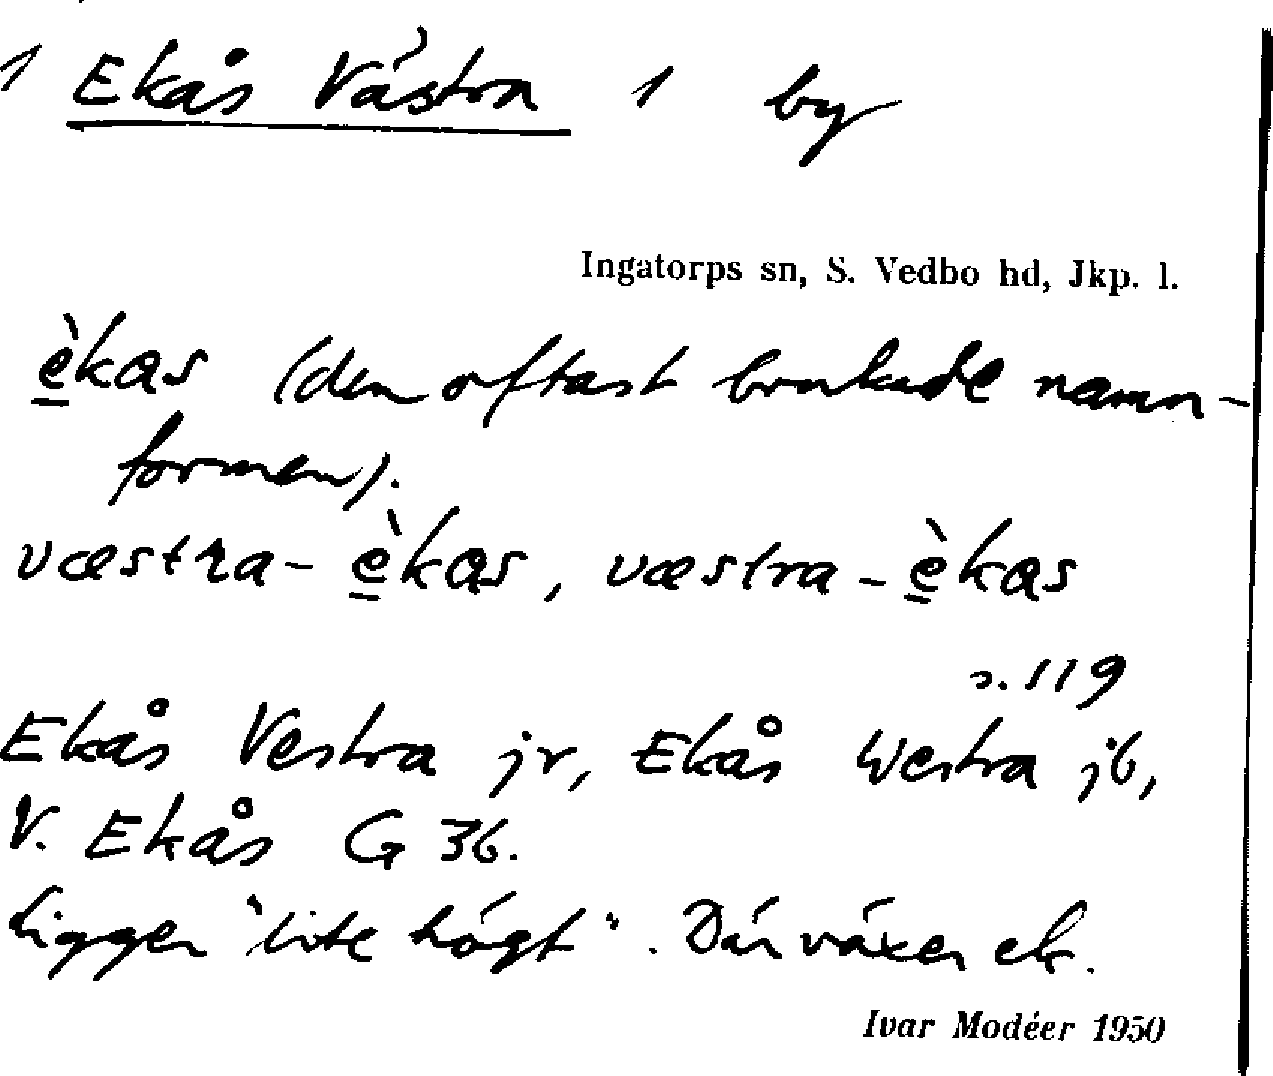 1 Ekås Västra 1 by
Ingatorps sn, S. Vedbo hd, Jkp. l.
è̱kas (den oftast brukade namn-
formen).
væstra-è̱kas, væstra-è̱kas
s. 119
Ekås Vestra jr, Ekås Westra jb,
V. Ekås G 36.
Ligger "lite högt". Där växer ek.
Ivar Modéer 1950